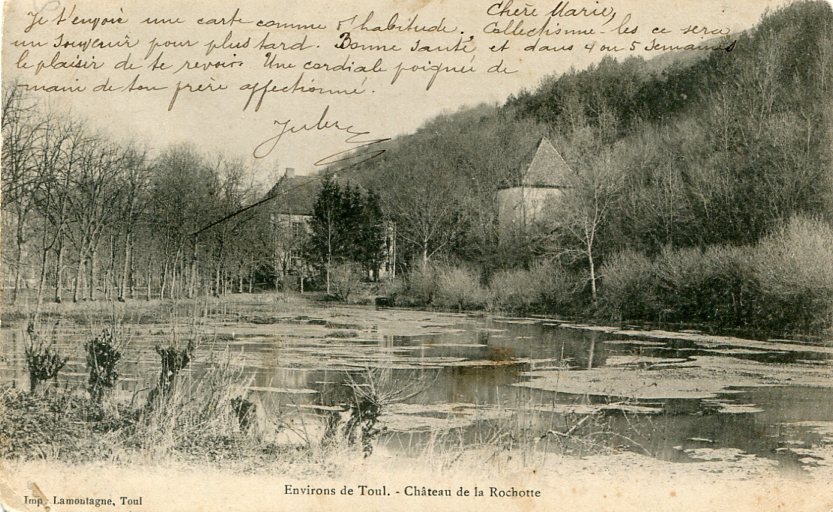 Chère Marie,
Je t'envoie une carte comme d'habitude. Collectionne-les ce sera
un souvenir pour plus tard. Bonne santé et dans 4 ou 5 semaines
le plaisir de te revoir. Une cordiale poignée de
main de ton frère affectionné.
Jules
Imp. Lamontagne, Toul
Environs de Toul. - Château de la Rochotte